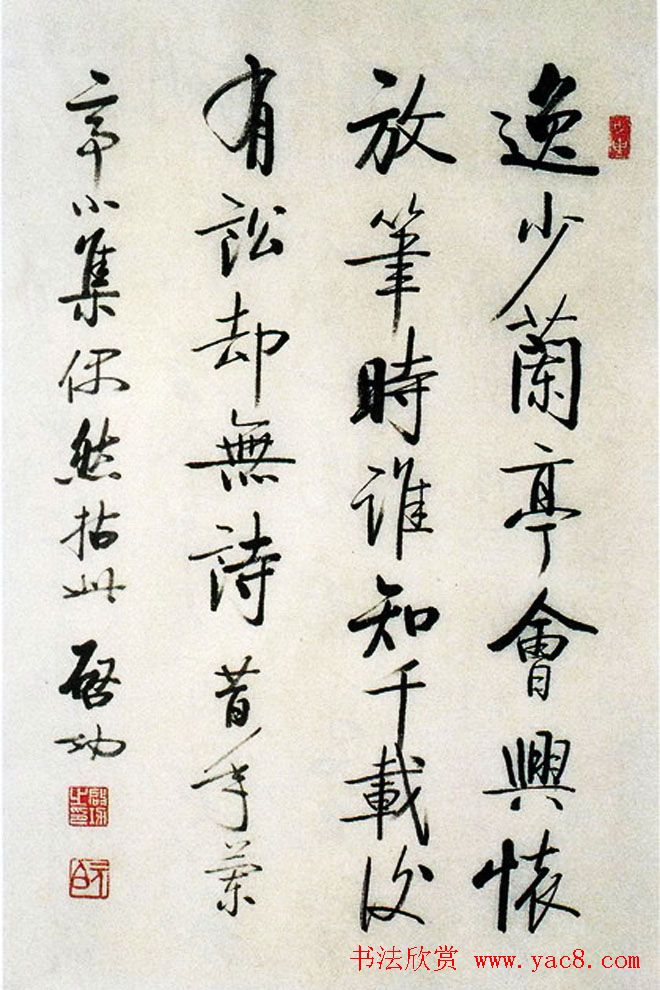 逸少蘭亭會興懷
放筆時誰知千載後
有訟却無詩 昔年蘭
亭小集偶然拈此 啓功
啟功之印
书法欣赏 www.yac8.com